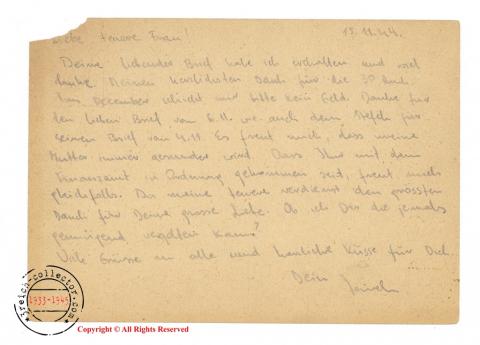 Liebe teuere Frau! 13.11.44.
Deine liebender Brief habe ich erhalten und viel
danke. Meinen herzlichsten Dank für die 30
Im Dezember schickt mir bitte kein Geld. Danke für
den lieben Brief von 6.11. wie auch dem für
seinen Brief vom 4.11. Es freut mich, dass meine
Mutter immer gesunder wird. Dass Ihr mit dem
Finanzamt in Ordnung gekommen seid, freut mich
gleichfalls. Du meine teuere verdienst den grossten
Dank für Deine grosse Liebe. Ob ich Dir die jemals
genügend vergelten kann?
Viele Grüsse an alle und herzliche Küsse für Dich.
Dein
ireich-collector.com
1933-1945
Copyright © All Rights Reserved